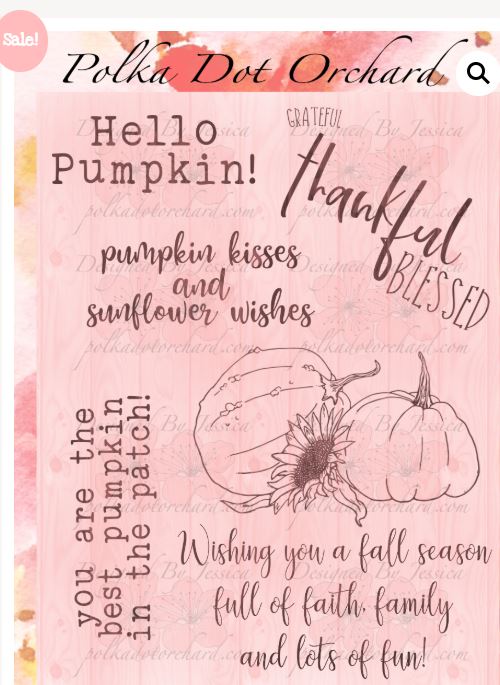 Sale!
Polka Dot Orchard
Hello
Pumpkin!
GRATEFUL
thankful
BLESSED
pumpkin kisses
and
sunflower wishes
you are the
best pumpkin
in the patch!
Wishing you a fall season
full of faith, family
and lots of fun!
Designed By Jessica
polkadotorchard.com